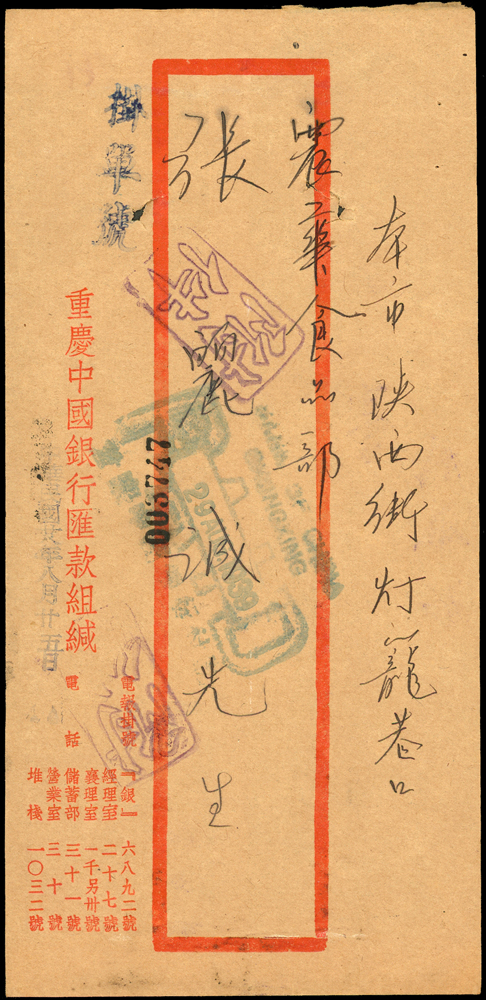 本市陝西街灯籠巷口
震華食品部
張麗誠先生
003747
掛單號
重慶中國銀行匯款組緘
電報掛號『銀』六八九二號
經理室二十七號
襄理室一千另卅號
電話
儲蓄部三十一號
營業室三十號
堆棧一〇三二號
年八月廿五日
BANK OF CHINA
CHUNGKING